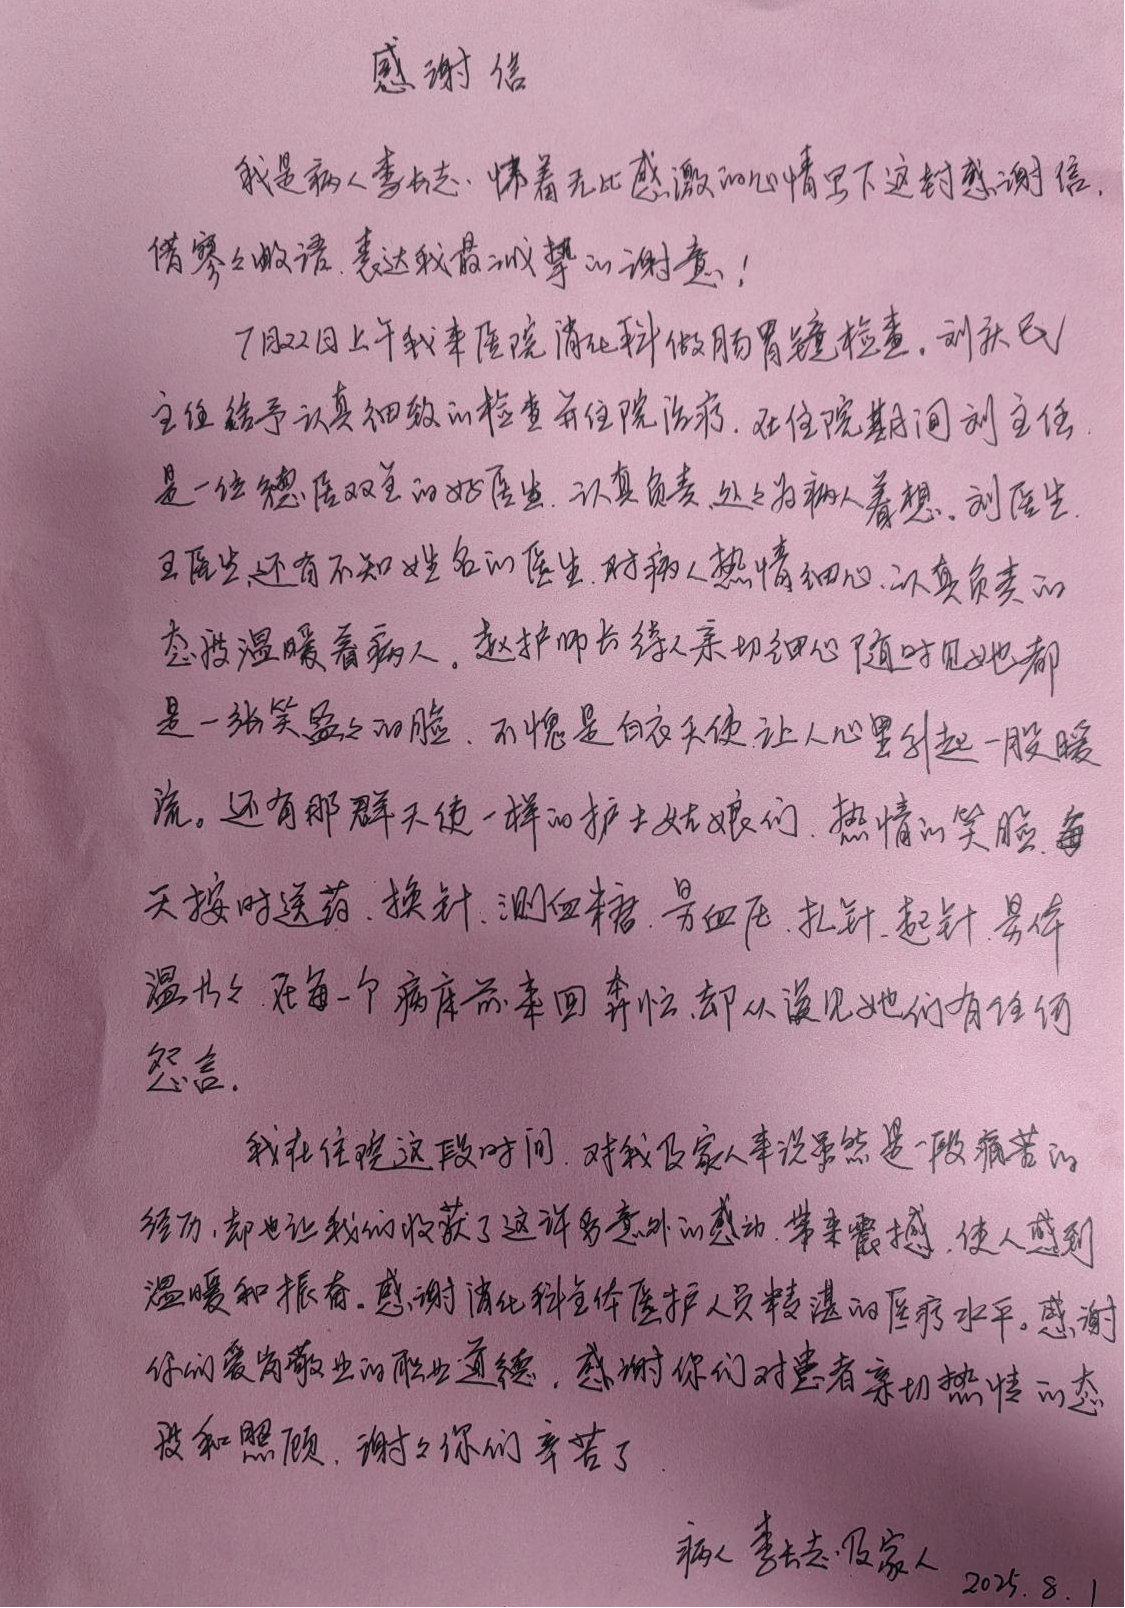 感谢信
我是病人李长志.怀着无比感激的心情写下这封感谢信.
借寥々数语.表达我最诚挚的谢意!
7月22日上午我来医院消化科做肠胃镜检查.刘跃民
主任给予认真细致的检查并住院治疗.在住院期间刘主任.
是一位德医双全的好医生.认真负责.处々为病人着想。刘医生.
王医生.还有不知姓名的医生.对病人热情细心.认真负责的
态度温暖着病人。赵护师长待人亲切细心随时见她都
是一张笑盈々的脸.不愧是白衣天使.让人心里引起一股暖
流。还有那群天使一样的护士姑娘们.热情的笑脸.每
天按时送药.换针.测血糖.量血压.扎针.起针.量体
温等々.在每一个病床前来回奔忙.却从没见她们有任何
怨言.
我在住院这段时间.对我及家人来说虽然是一段痛苦的
经历,却也让我们收获了这许多意外的感动.带来震撼.使人感到
温暖和振奋。感谢消化科全体医护人员精湛的医疗水平。感谢
你们爱岗敬业的职业道德.感谢你们对患者亲切热情的态
度和照顾.谢々你们辛苦了.
病人 李长志.及家人
2025.8.1